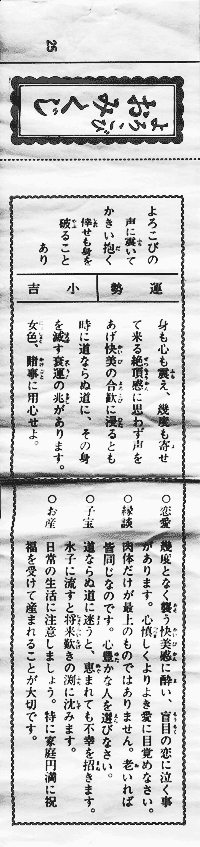 25
よろこび
おみくじ
よろこびの
声に震いて
かきい抱く
倖せも身を
破ること
あり
運勢
小吉
身も心も震え、幾度も寄せ
て来る絶頂感に思わず声を
あげ快美の合歓に浸るとも
時に道ならぬ道に、その身
を滅す衰運の兆があります。
女色、賭事に用心せよ。
○恋愛 幾度となく襲う快美感に酔い、盲目の恋に泣く事
があります。心慎しくよりよき愛に目覚めなさい。
○縁談 肉体だけが最上のものではありません。老いれば
皆同じなのです。心豊かな人を選びなさい。
○子宝 道ならぬ道に迷うと、恵まれても不幸を招きます。
水子に流すと将来歎きの渕に沈みます。
○お産 日常の生活に注意しましょう。特に家庭円満に祝
福を受けて産まれることが大切です。